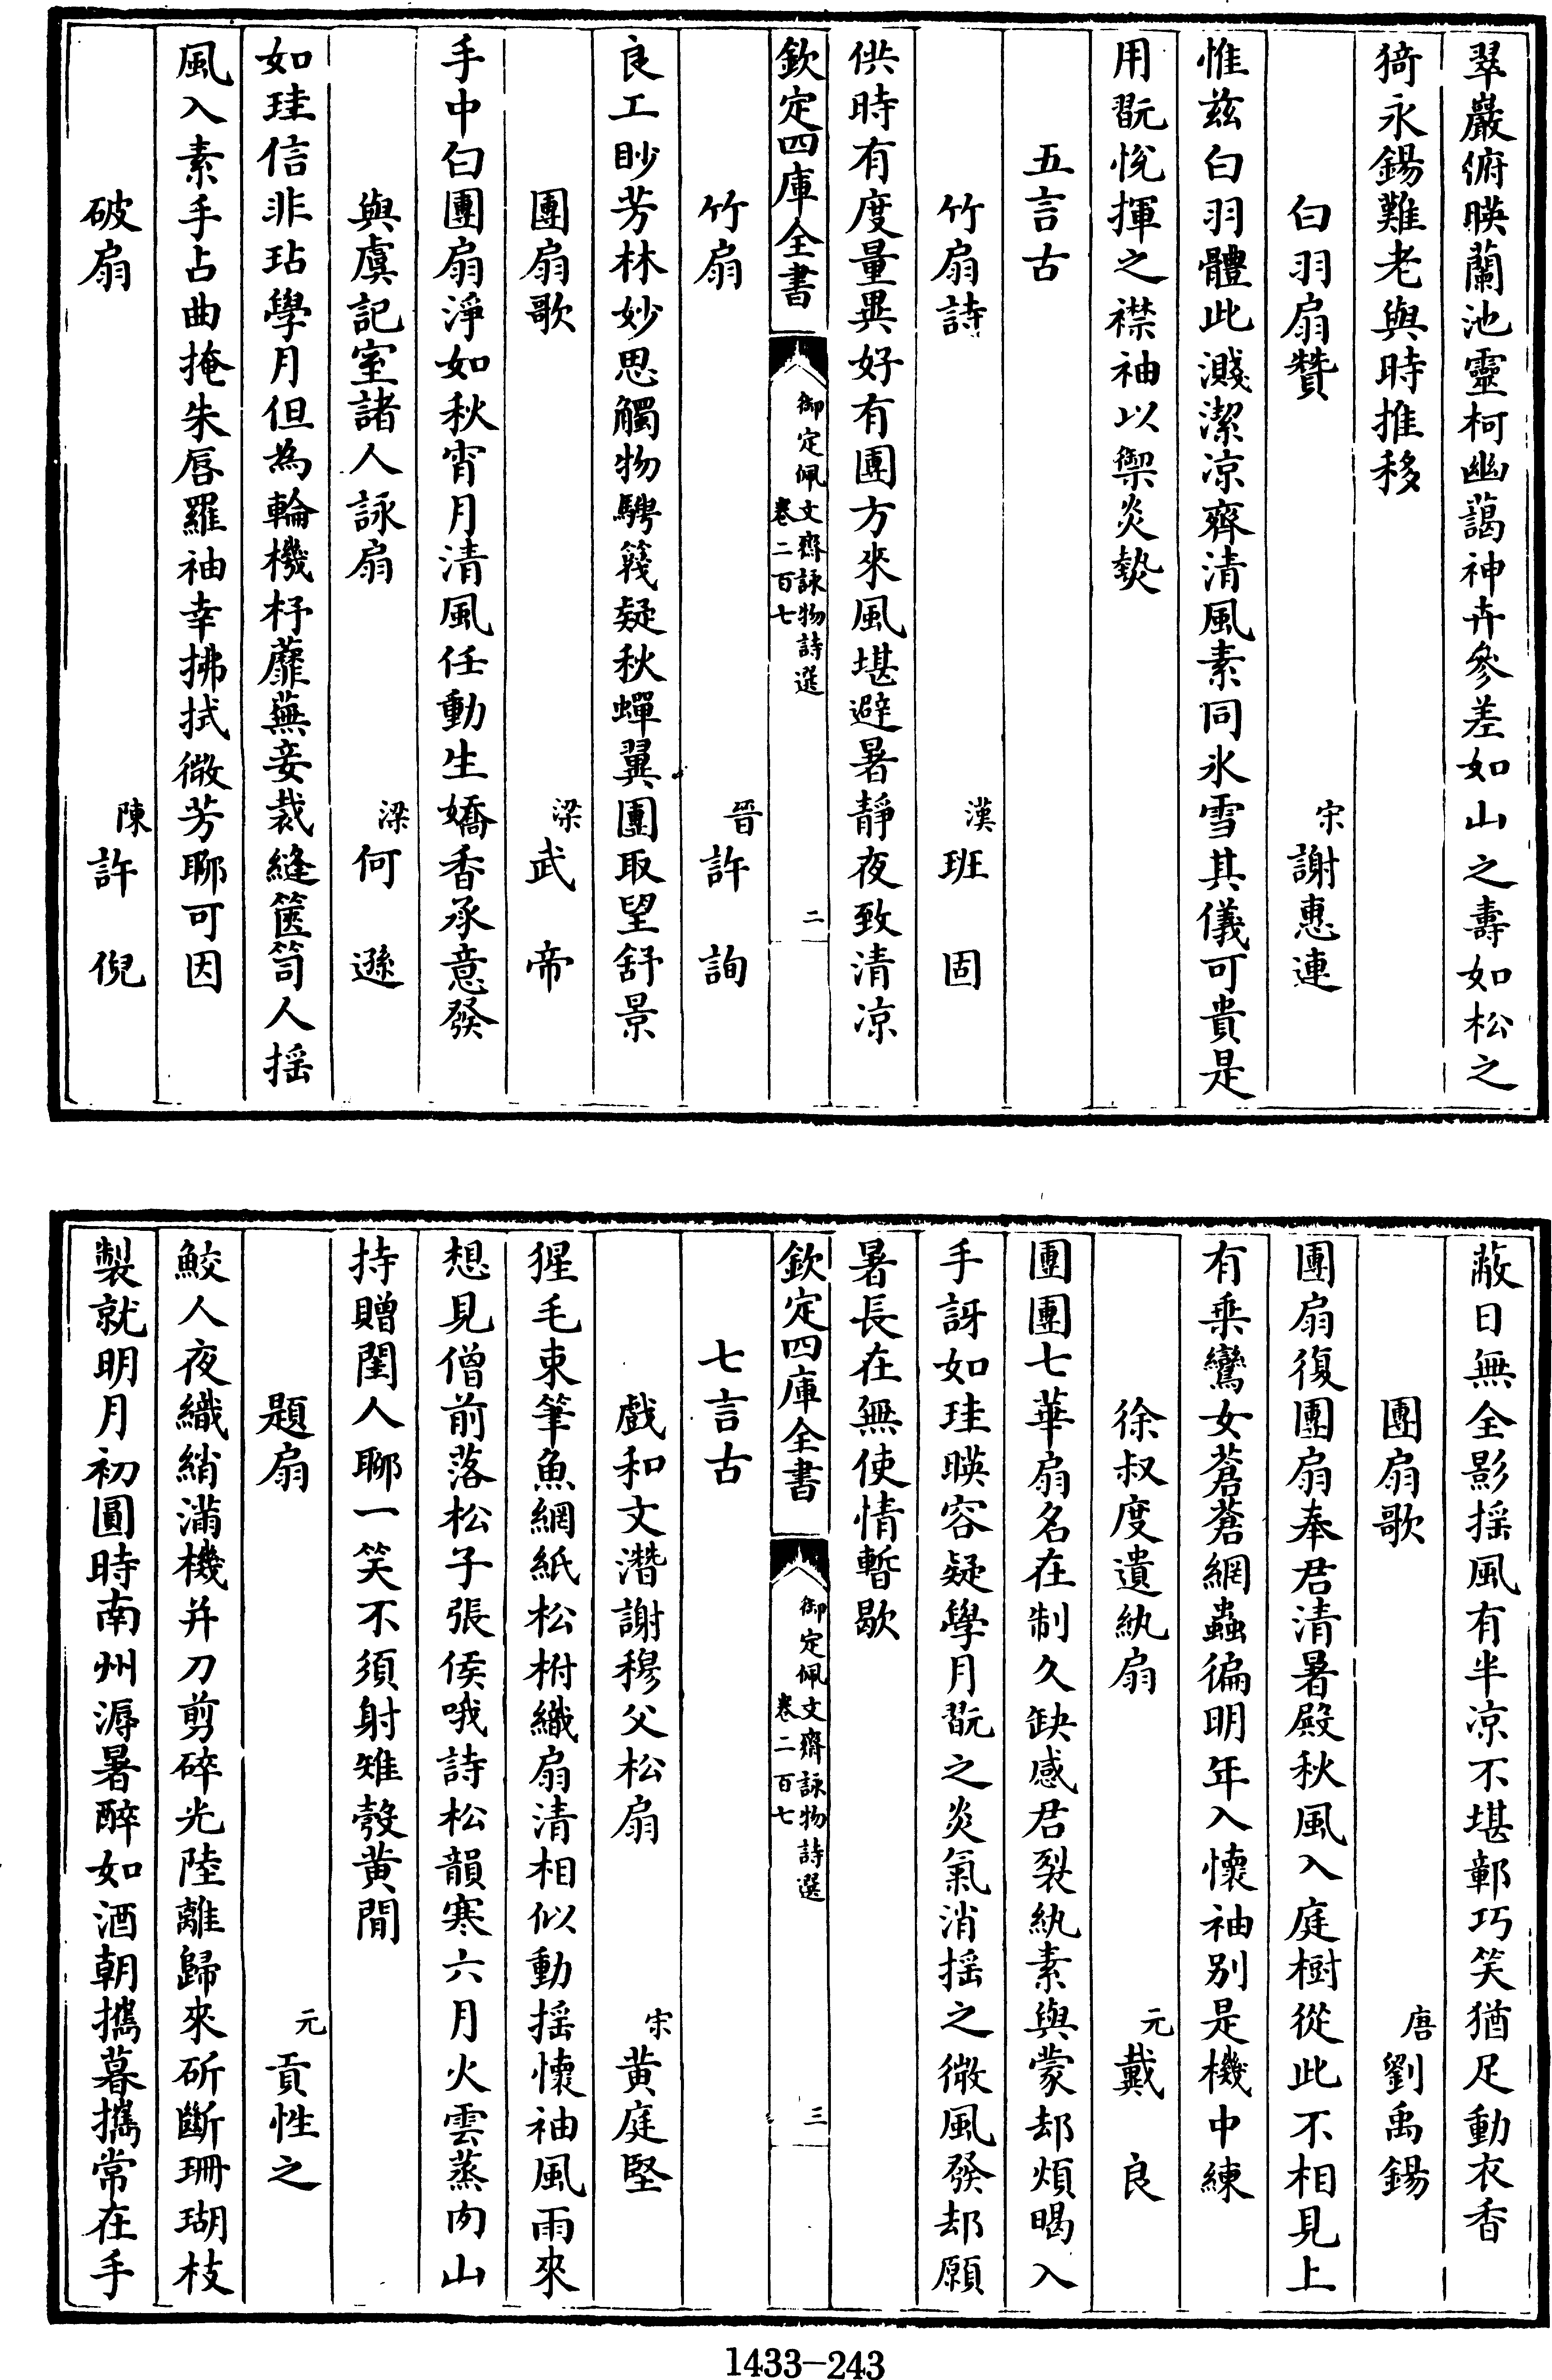 翠巖俯暎蘭池靈柯幽藹神卉參差如山之壽如松之
猗永錫難老與時推移
白羽扇贊
宋謝惠連
惟茲白羽體此濺潔凉齊清風素同氷雪其儀可貴是
用翫悅揮之襟袖以禦炎𤍠
五言古
竹扇詩
漢班固
供時有度量異好有團方來風堪避暑靜夜致清凉
欽定四庫全書
御定佩文齋詠物詩選
卷二百七
二
竹扇
晉許詢
良工眇芳林妙思觸物騁篾疑秋蟬翼團取望舒景
團扇歌
梁武帝
手中白團扇淨如秋宵月清風任動生嬌香承意發
與虞記室諸人詠扇
梁何遜
如珪信非玷學月但為輪機杼蘼蕪妾裁縫篋笥人揺
風入素手占曲掩朱唇羅袖幸拂拭微芳聊可因
破扇
陳許倪
蔽日無全影揺風有半凉不堪鄣巧笑猶足動衣香
團扇歌
唐劉禹錫
團扇復團扇奉君清暑殿秋風入庭樹從此不相見上
有乗鸞女蒼蒼網蟲徧明年入懷袖别是機中練
徐叔度遺紈扇
元戴良
團團七華扇名在制久缺感君裂紈素與蒙却煩暍入
手訝如珪暎容疑學月翫之炎氣消揺之微風發却願
暑長在無使情暫歇
欽定四庫全書
御定佩文齋詠物詩選
卷二百七
三
七言古
戲和文潛謝穆父松扇
宋黄庭堅
猩毛束筆魚網紙松柎織扇清相似動揺懷袖風雨來
想見僧前落松子張侯哦詩松韻寒六月火雲蒸肉山
持贈閨人聊一笑不須射雉彀黄間
題扇
元貢性之
鮫人夜織綃滿機并刀剪碎光陸離歸來斫斷珊瑚枝
製就明月初圓時南州溽暑醉如酒朝攜暮攜常在手
1433-243